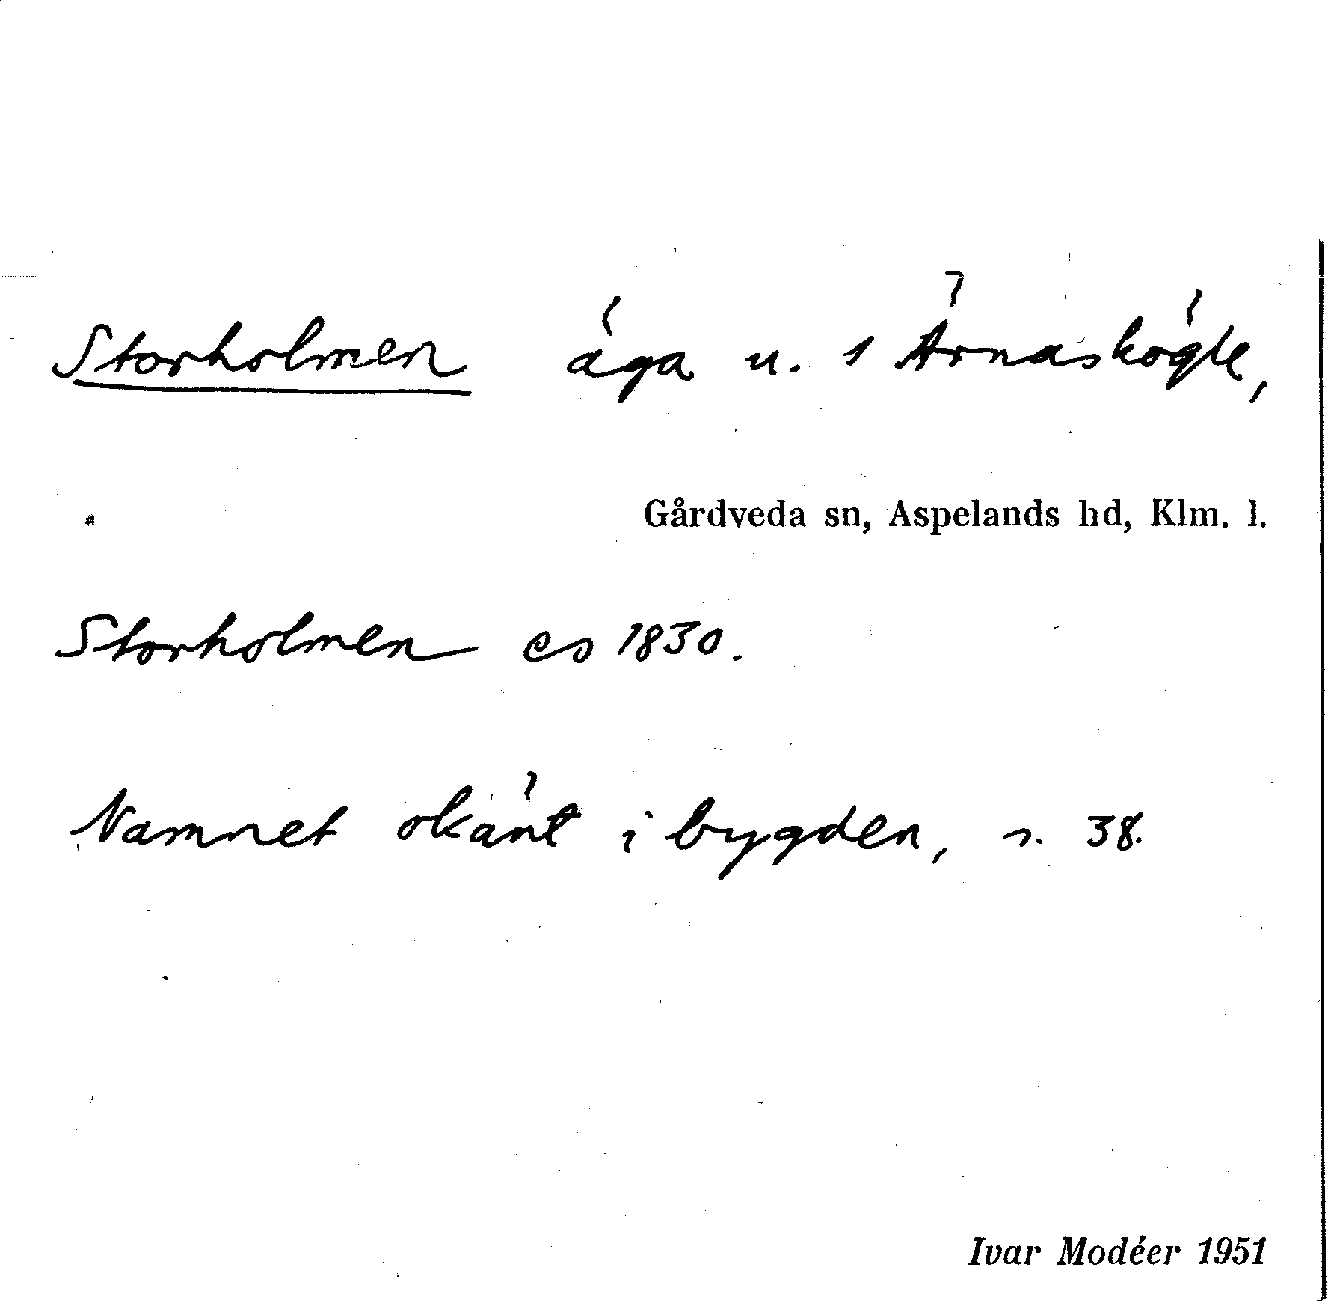 Storholmen äga u. 1 Årnaskögle,
Gårdveda sn, Aspelands hd, Klm. l.
Storholmen es 1830.
Namnet okänt i bygden, s. 38.
Ivar Modéer 1951